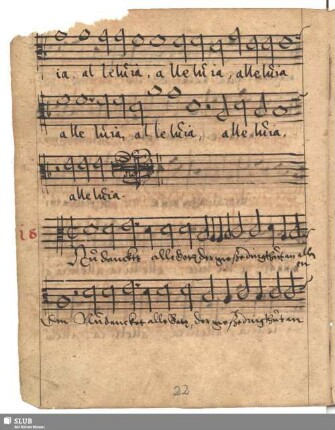 ia, al leluia, a lle luia, alleluia
alle luia, al le luia, alle luia.
alleluia.
18
Nu dancket alle Gott, der grosse ding thut an allen
Nu dancket alle Gott, der grosse ding thut an
22
SLUB